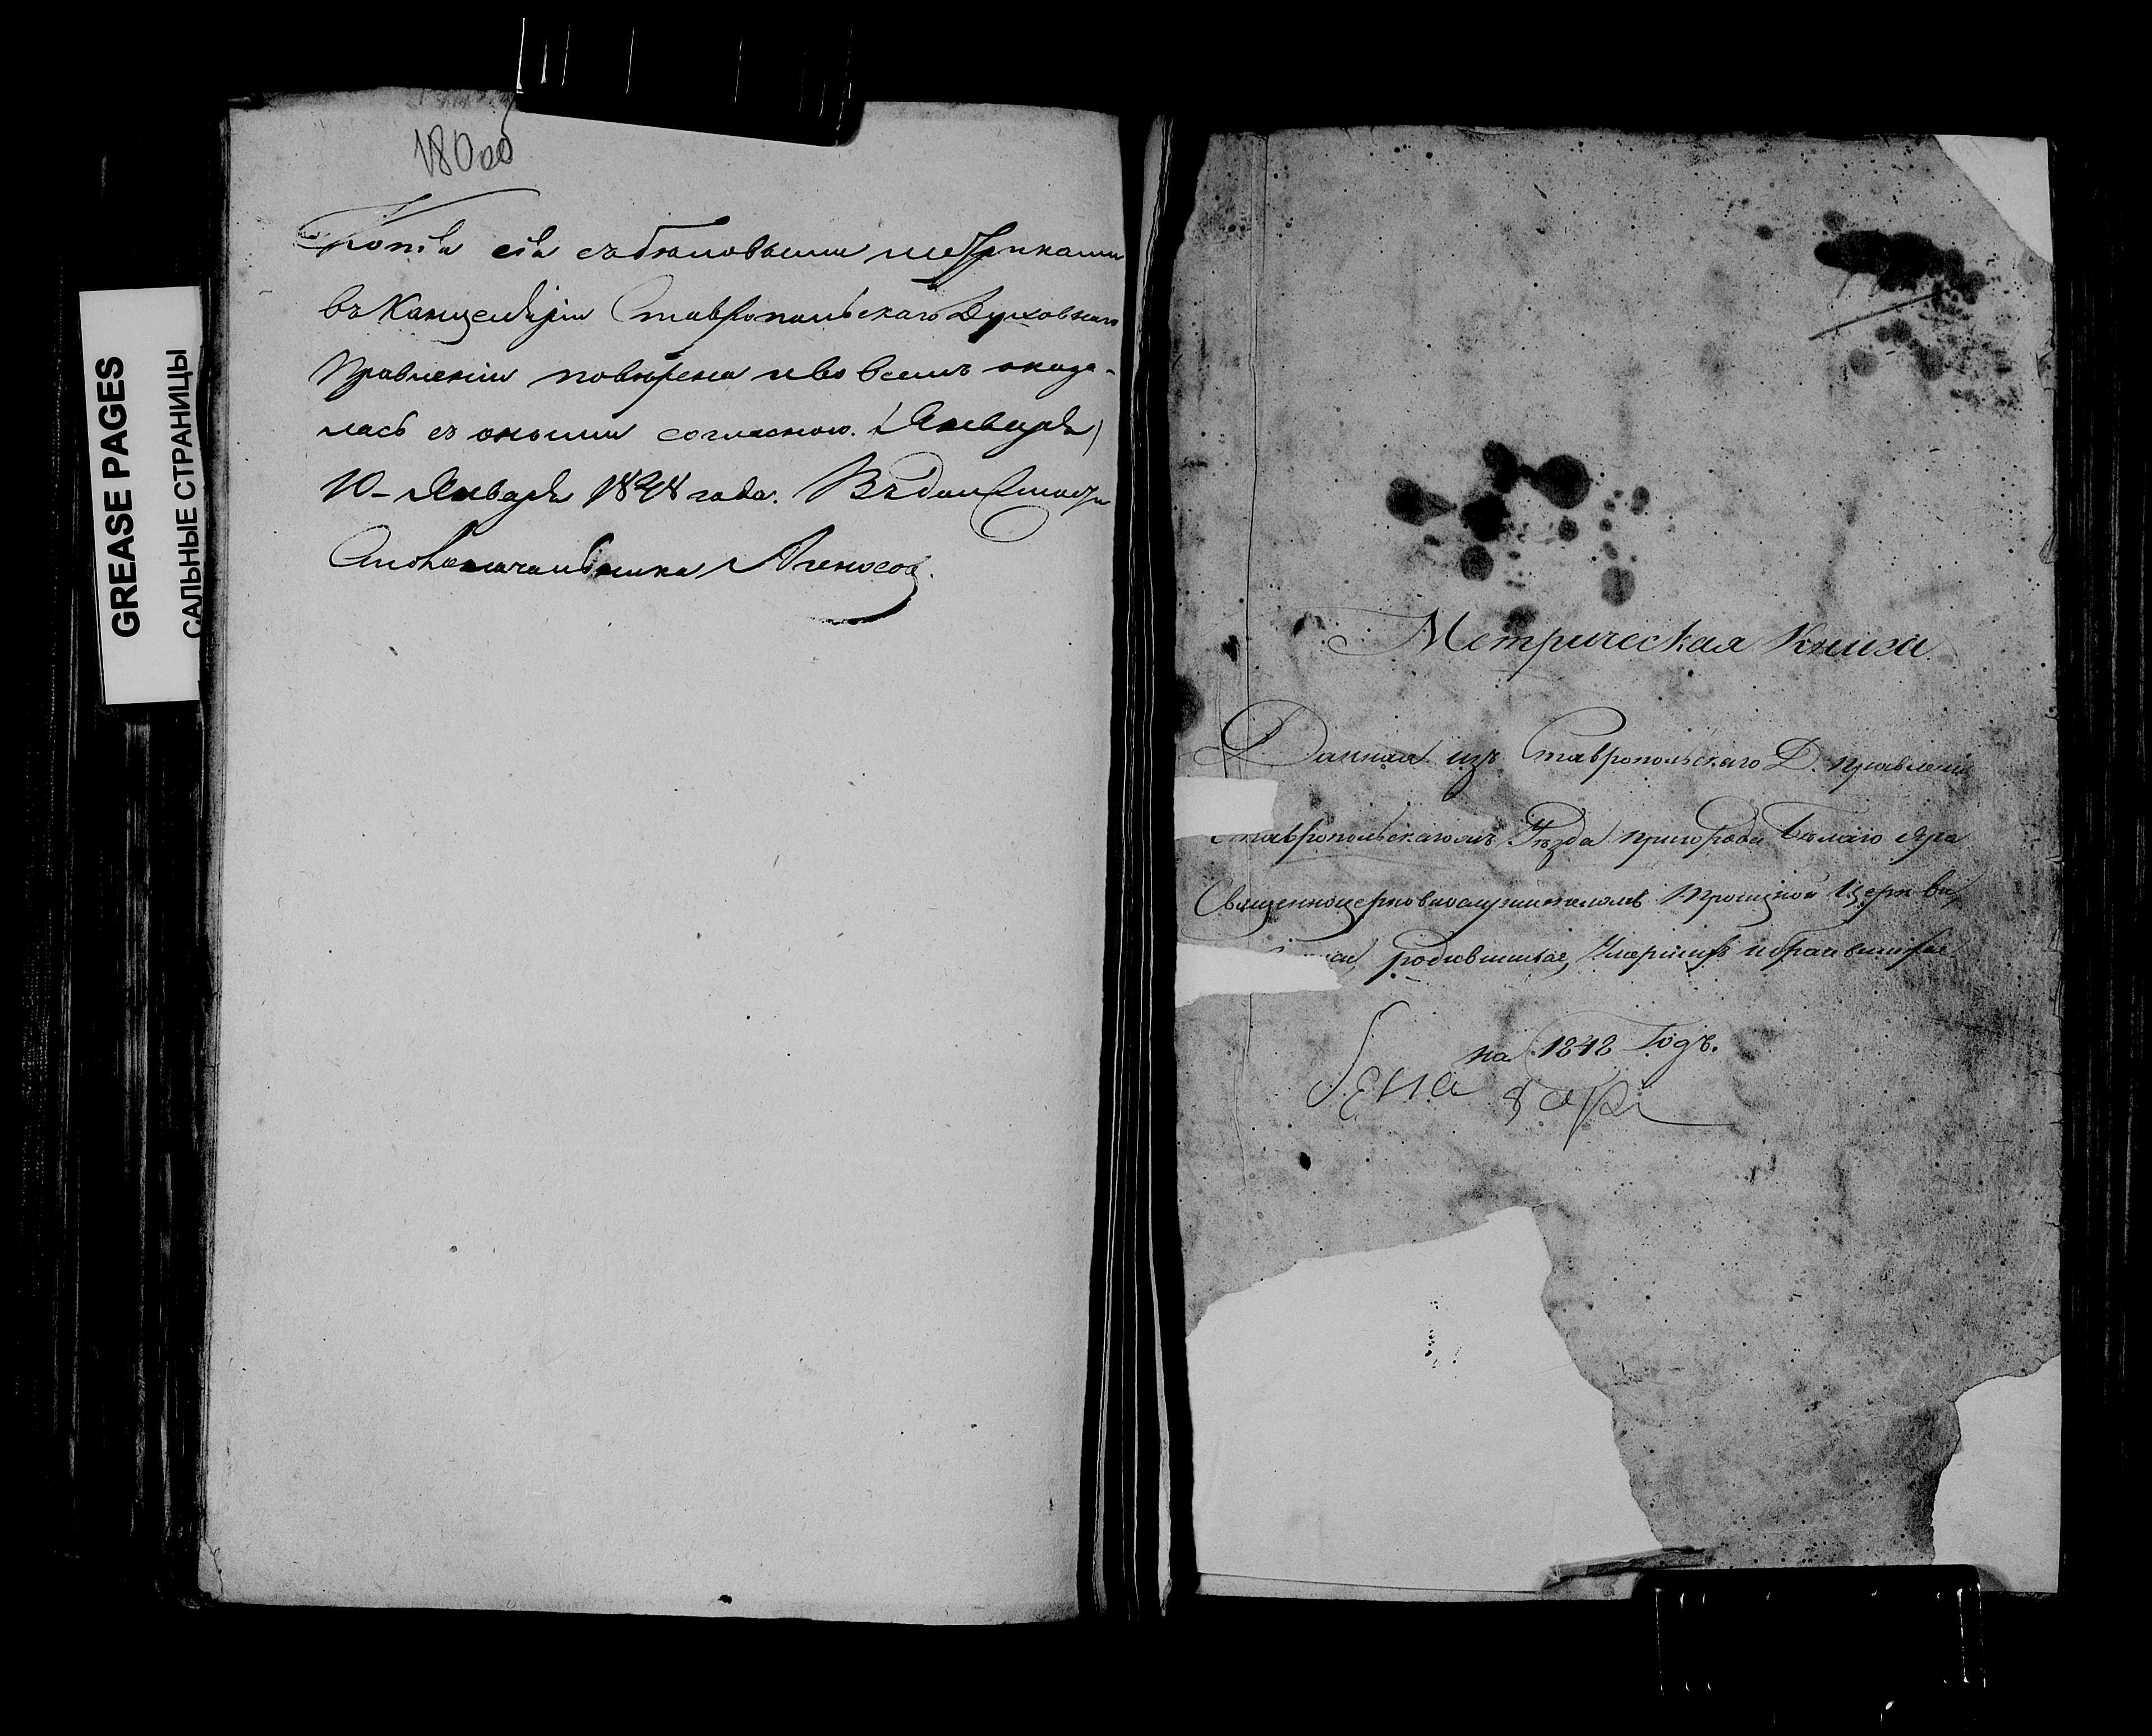 GREASE PAGES
САЛЬНЫЕ СТРАНИЦЫ
Копія сія съ бѣловыми метриками
въ Канцеляріи Ставропольскаго Духовнаго
Правленія повѣрена и во всемъ оказа-
лась съ оными согласною. (Января)
10 Января 1848 года. Въ должности
Столоначальника
Метрическая Книга
Данная изъ Ставропольскаго Д. правленія
Ставропольскагожъ Уѣзда пригорода Бѣлаго Яра
Священноцерковнослужителямъ Троицкой Церкви
родившихся, Умершихъ и брачившихся
на 1848 Годъ.